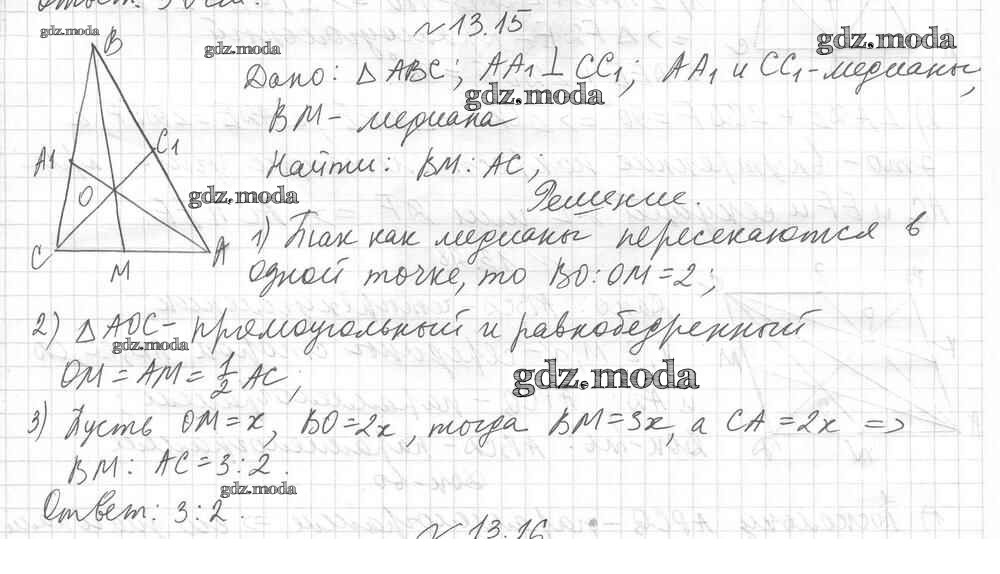 Ответ: 30 см.
№13.15
gdz.moda
B
gdz.moda
gdz.moda
Дано: △ABC; AA1 ⊥ CC1; AA1 и CC1 - медианы,
gdz.moda
BM - медиана
C1
A1
Найти: BM : AC;
O
gdz.moda
Решение.
C
M
A
1) Так как медианы пересекаются в
одной точке, то BO:OM=2;
2) △AOC - прямоугольный и равнобедренный
gdz.moda
OM = AM = 1/2 AC;
gdz.moda
3) Пусть OM=x, BO=2x, тогда BM=3x, а CA=2x =>
BM: AC=3:2.
gdz.moda
Ответ: 3:2.
№13.16